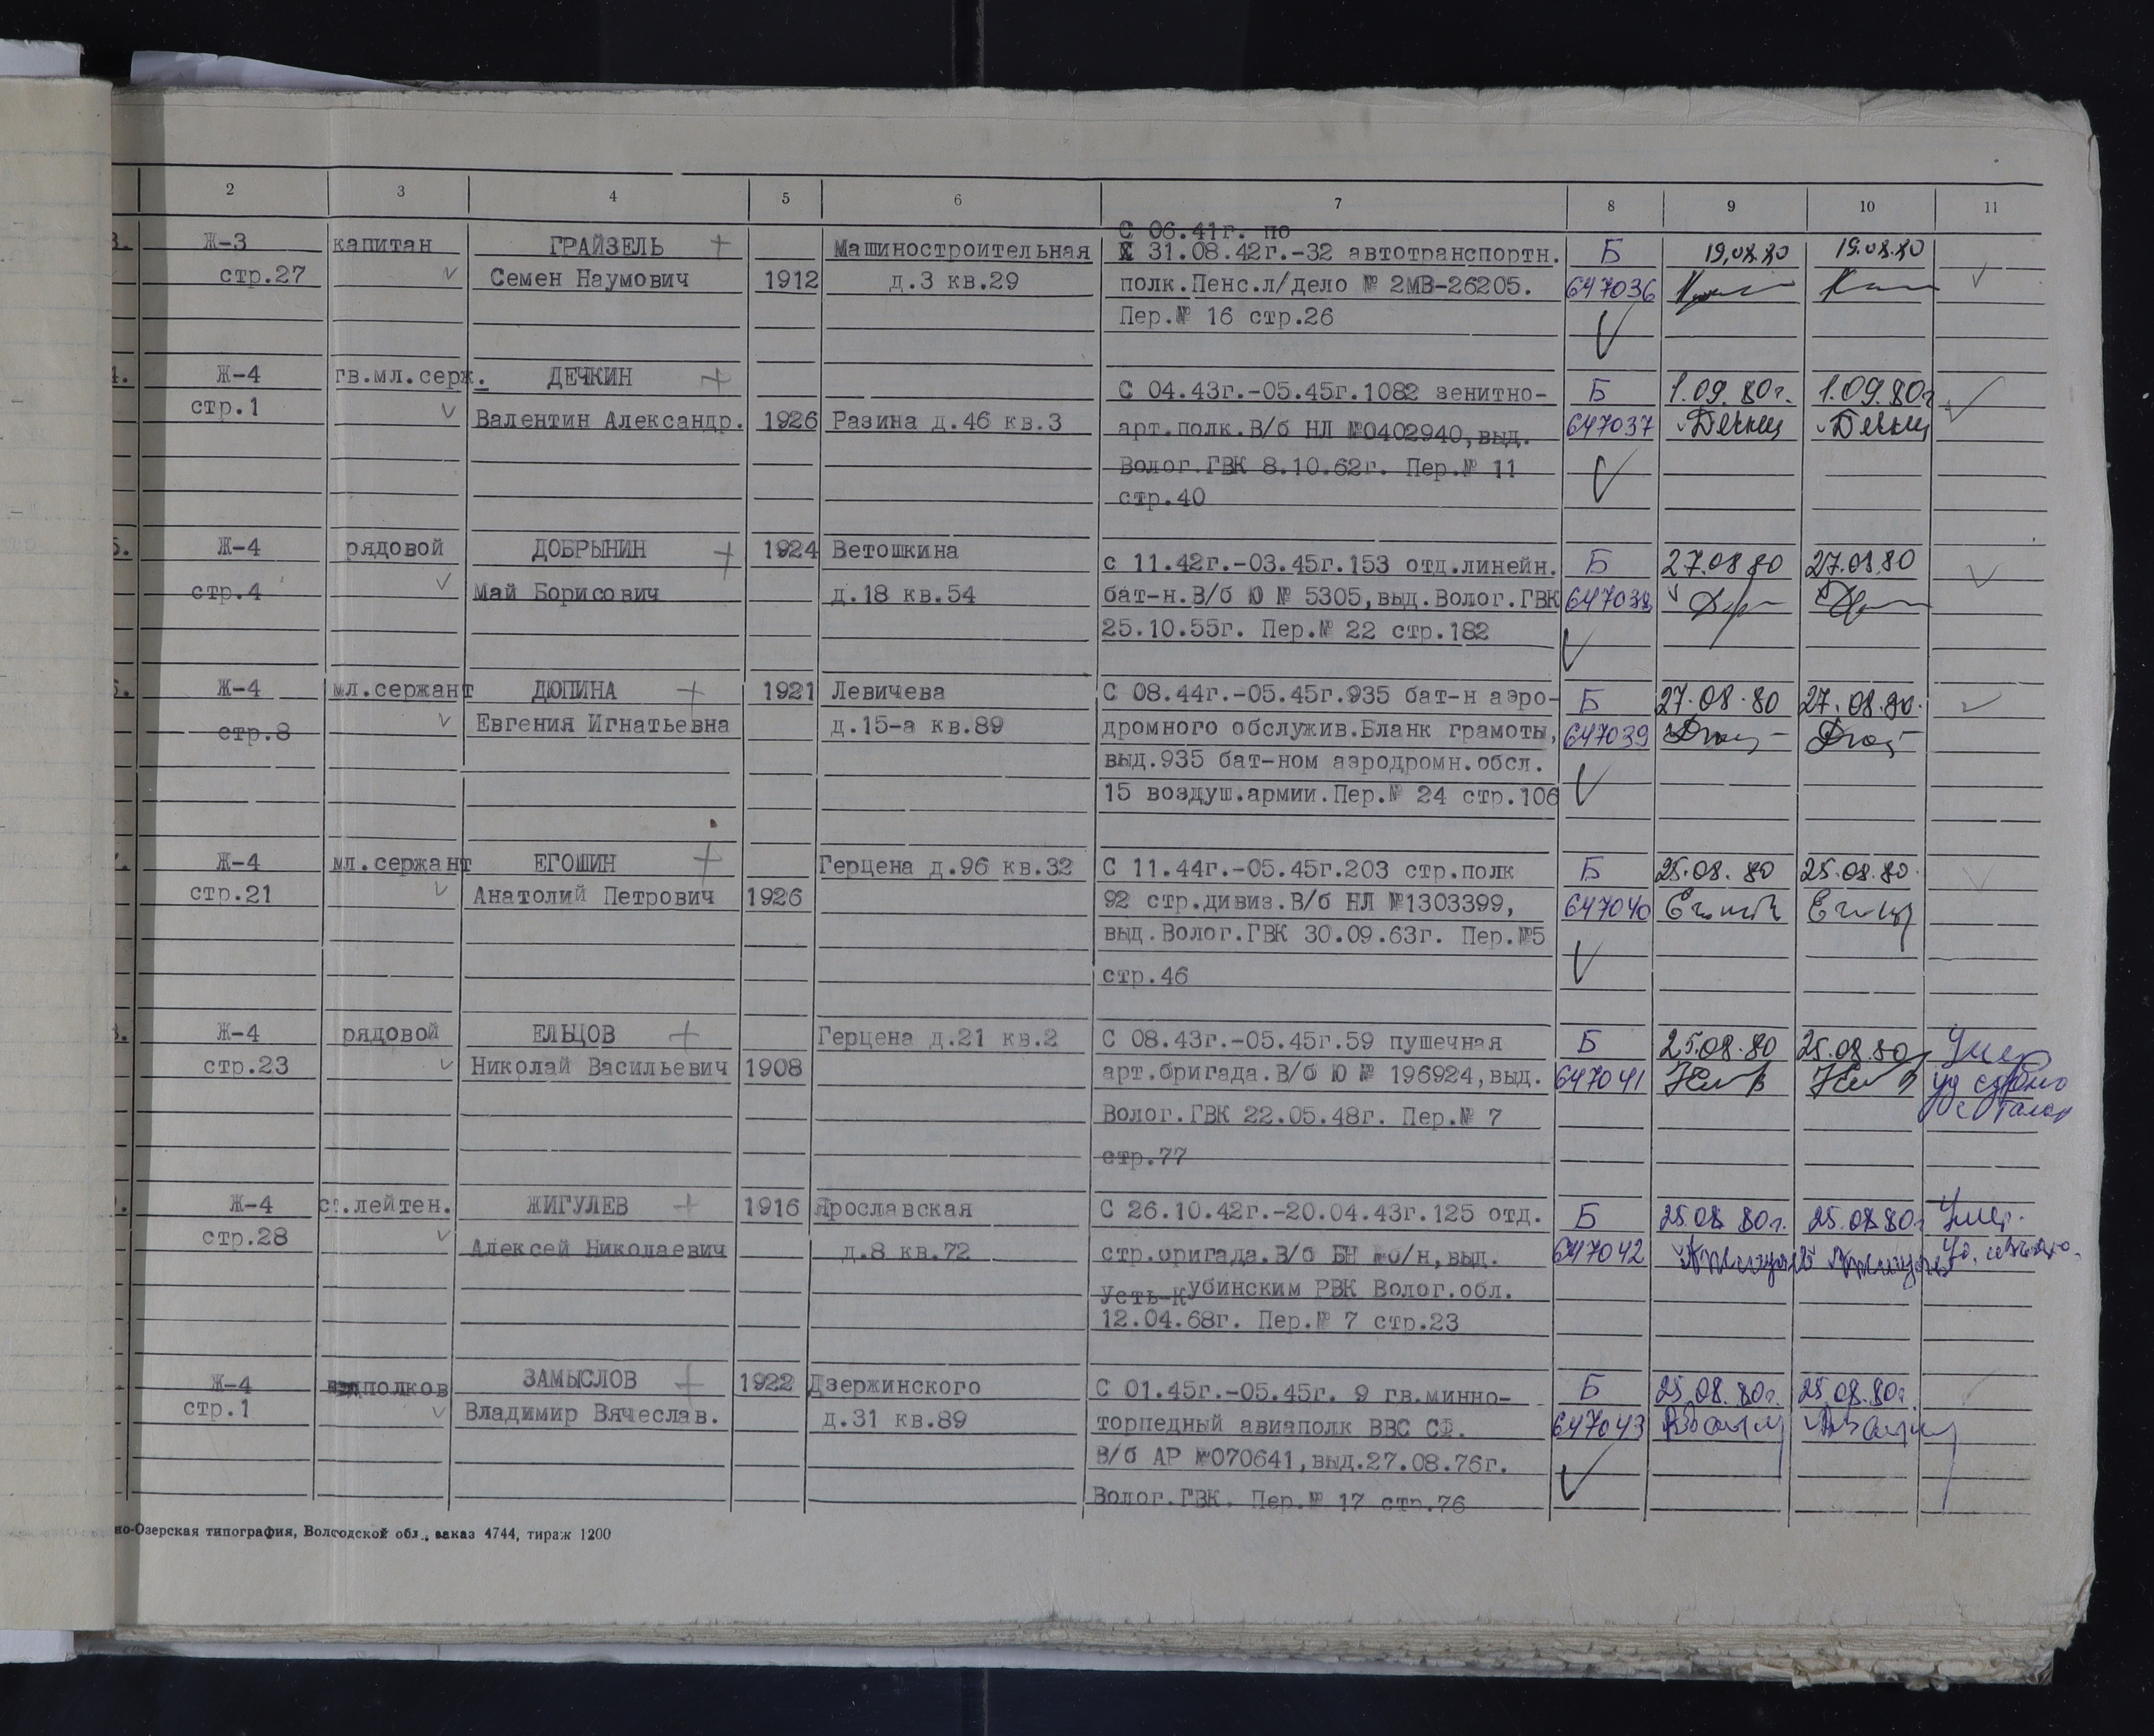 2 3 4 5 6 7 8 9 10 11
С 06.41г. по
3. Ж-3 капитан ГРАЙЗЕЛЬ + Машиностроительная 31.08.42г.-32 автотранспортн. Б 19.08.80 19.08.80
стр.27 Семен Наумович 1912 д.3 кв.29 полк.Пенс.л/дело № 2МВ-26205. 647036
Пер.№ 16 стр.26
4. Ж-4 гв.мл.серж. ДЕЧКИН + С 04.43г.-05.45г.1082 зенитно- Б 1.09.80г. 1.09.80г
стр.1 Валентин Александр. 1926 Разина д.46 кв.3 арт.полк.В/б НЛ №0402940,выд. 647037
Волог.ГВК 8.10.62г. Пер.№ 11
стр.40
5. Ж-4 рядовой ДОБРЫНИН + 1924 Ветошкина с 11.42г.-03.45г.153 отд.линейн. Б 27.08 80 27.08.80
стр.4 Май Борисович д.18 кв.54 бат-н.В/б Ю № 5305,выд.Волог.ГВК 647038
25.10.55г. Пер.№ 22 стр.182
6. Ж-4 мл.сержант ДЮПИНА + 1921 Левичева С 08.44г.-05.45г.935 бат-н аэро- Б 27.08.80 27.08.80.
стр.8 Евгения Игнатьевна д.15-а кв.89 дромного обслужив.Бланк грамоты, 647039
выд.935 бат-ном аэродромн.обсл.
15 воздуш.армии.Пер.№ 24 стр.106
7. Ж-4 мл.сержант ЕГОШИН + Герцена д.96 кв.32 С 11.44г.-05.45г.203 стр.полк Б 25.08.80 25.08.80.
стр.21 Анатолий Петрович 1926 92 стр.дивиз.В/б НЛ №1303399, 647040
выд.Волог.ГВК 30.09.63г. Пер.№5
стр.46
8. Ж-4 рядовой ЕЛЬЦОВ + Герцена д.21 кв.2 С 08.43г.-05.45г.59 пушечная Б 25.08.80 25.08.80 Умер
стр.23 Николай Васильевич 1908 арт.бригада.В/б Ю № 196924,выд. 647041
Волог.ГВК 22.05.48г. Пер.№ 7
стр.77
Ж-4 ст.лейтен. ЖИГУЛЕВ + 1916 Ярославская С 26.10.42г.-20.04.43г.125 отд. Б 25.08 80г. 25.08 80г Умер.
стр.28 Алексей Николаевич д.8 кв.72 стр.бригада.В/б БН №б/н,выд. 647042
Усть-Кубинским РВК Волог.обл.
12.04.68г. Пер.№ 7 стр.23
Ж-4 подполков ЗАМЫСЛОВ + 1922 Дзержинского С 01.45г.-05.45г. 9 гв.минно- Б 25.08.80г. 25.08.80г.
стр.1 Владимир Вячеслав. д.31 кв.89 торпедный авиаполк ВВС СФ. 647043
В/б АР №070641,выд.27.08.76г.
Волог.ГВК. Пер.№ 17 стр.76
но-Озерская типография, Вологодской обл., заказ 4744, тираж 1200